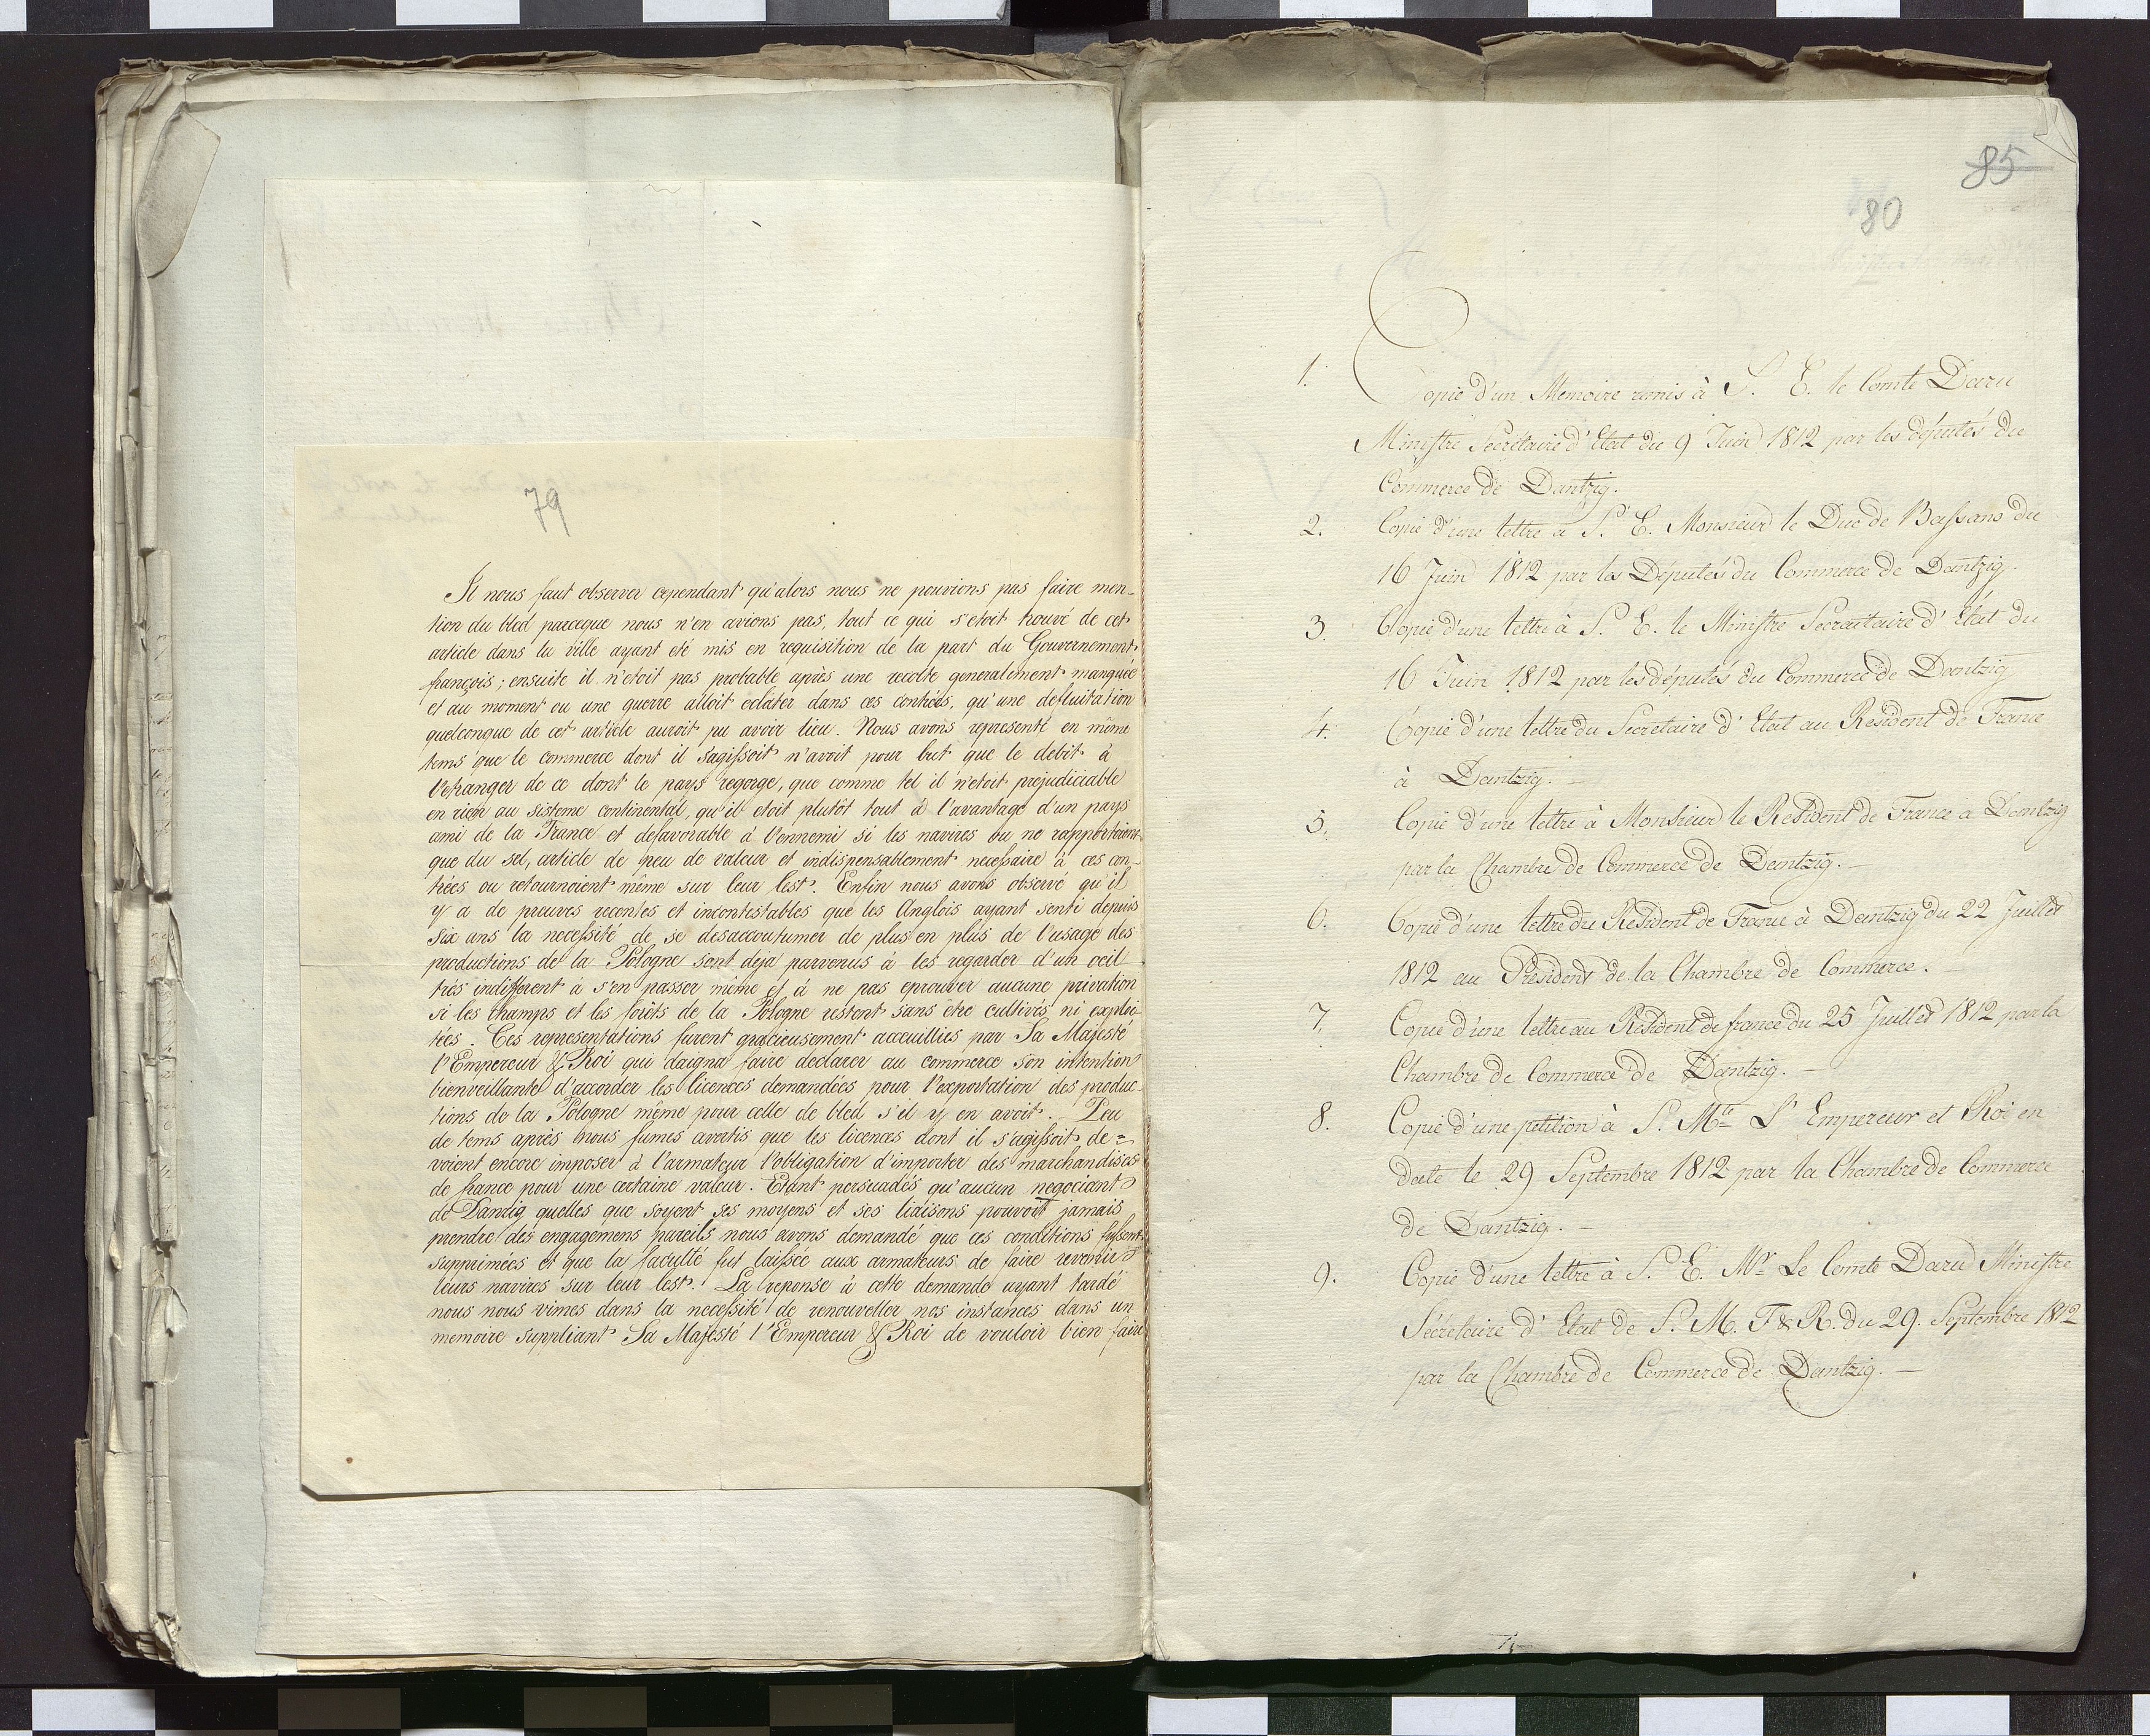 79
Il nous faut observer cependant qu'alors nous ne pouvions pas faire men-
tion du bled parceque nous n'en avions pas, tout ce qui s'etoit trouvé de cet
article dans la ville ayant eté mis en requisition de la part du Gouvernement
françois; ensuite il n'etoit pas probable après une recolte generalement manquée
et au moment ou une guerre alloit eclater dans ces contrées, qu'une defluitation
quelconque de cet article auroit pu avoir lieu. Nous avons representé en même
tems que le commerce dont il s'agissoit n'avoit pour but que le debit à
l'etranger de ce dont le pays regorge, que comme tel il n'etoit prejudiciable
en rien au sisteme continental, qu'il etoit plutôt tout à l'avantage d'un pays
ami de la France et defavorable à l'ennemi si les navires ou ne rapportoient
que du sel, article de peu de valeur et indispensablement necessaire à ces con-
trées ou retournoient même sur leur lest. Enfin nous avons observé qu'il
y a de preuves recentes et incontestables que les Anglois ayant senti depuis
six ans la necessité de se desaccoutumer de plus en plus de l'usage des
productions de la Pologne sont deja parvenus à les regarder d'un oeil
très indifferent à s'en passer même et à ne pas eprouver aucune privation
si les champs et les forêts de la Pologne restent sans être cultivés ni exploi-
tées. Ces representations furent gracieusement accueillies par Sa Majesté
l'Empereur & Roi qui daigna faire declarer au commerce son intention
bienveillante d'accorder les licences demandées pour l'exportation des produc-
tions de la Pologne même pour celle de bled s'il y en avoit. Peu
de tems après nous fumes avertis que les licences dont il s'agissoit de=
voient encore imposer à l'armateur l'obligation d'importer des marchandises
de france pour une certaine valeur. Etant persuadés qu'aucun negociant
de Danzig quelles que soyent ses moyens et ses liaisons pouvoit jamais
prendre des engagemens pareils nous avons demandé que ces conditions fussent
supprimées et que la faculté fut laissée aux armateurs de faire revenir
leurs navires sur leur lest. La reponse à cette demande ayant tardé
nous nous vimes dans la necessité de renouveller nos instances dans un
memoire suppliant Sa Majesté l'Empereur & Roi de vouloir bien faire
85
80
1. Copie d'un Memoire remis à S. E. le Comte Daru
Ministre Secrétaire d'Etat du 9 Juin 1812 par les députés du
Commerce de Dantzig.
2. Copie d'une lettre à S. E. Monsieur le Duc de Bassano du
16 Juin 1812 par les Députés du Commerce de Dantzig.
3. Copie d'une lettre à S. E. le Ministre Secraitaire d'Etat du
16 Juin 1812 par les députés du Commerce de Dantzig
4. Copie d'une lettre du Secretaire d'Etat au Resident de France
à Dantzig. –
5. Copie d'une lettre à Monsieur le Resident de France a Dantzig
par la Chambre de Commerce de Dantzig. –
6. Copie d'une lettre du Resident de France à Dantzig du 22 Juillet
1812 au President de la Chambre de Commerce. –
7. Copie d'une lettre au Resident de france du 25 Juillet 1812 par la
Chambre de Commerce de Dantzig. –
8. Copie d'une petition à S. Mte L'Empereur et Roi en
date le 29 Septembre 1812 par la Chambre de Commerce
de Dantzig. –
9. Copie d'une lettre à S. E. Mr Le Comte Daru Ministre
Sécrétaire d'Etat de S. M. I & R. du 29. Septembre 1812
par la Chambre de Commerce de Dantzig. –